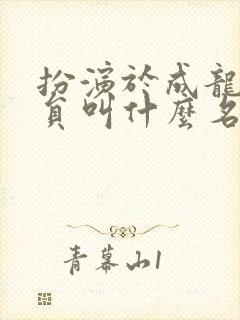 扮演於成龍
員叫什麼名
青幕山1